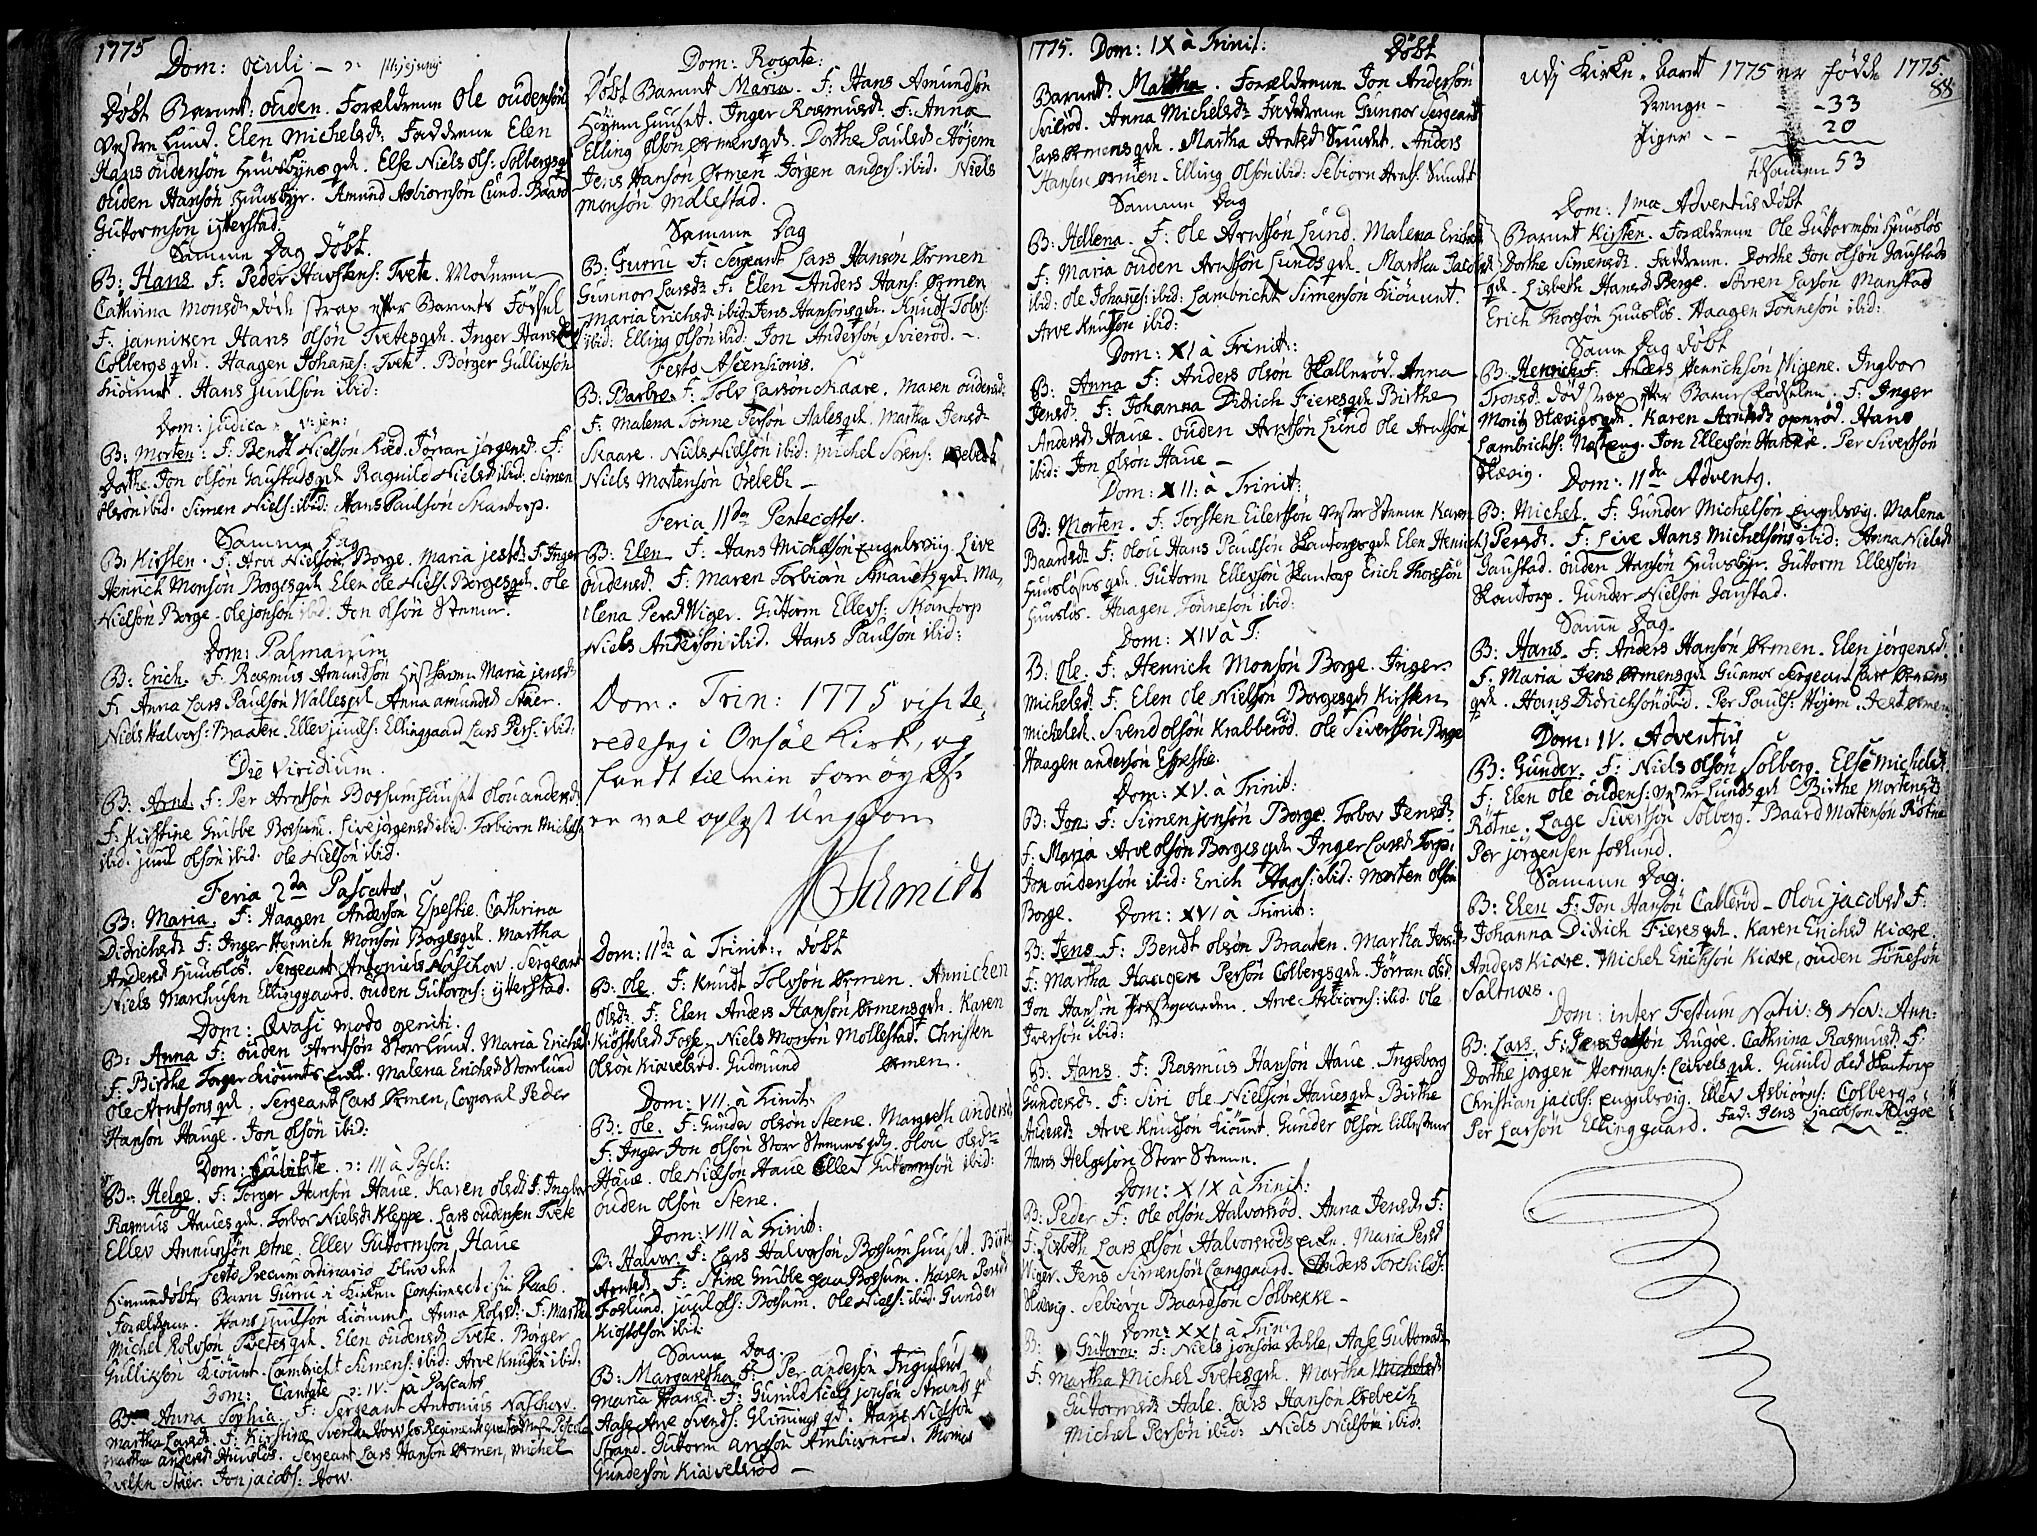 1775
Dom: oculi
Døbt Barnet: Ouden. Forældrene Ole Oudensön
Vestre Lund. Elen Michelsd: Faddrene Elen
Hans Oudensön Huusbÿes qde. Else Niels Ols: Solbergs qd
Ouden Hansön Huusbÿe. Amund Asbiornsön Lund. Baard
Guttormsön ÿtterstad.
Samme Dag Døbt.
B: Hans F: Peder Havstens: Tvete. Moderen
Cathrina Monsd: døde strax efter Barnets Födsel
F. janniken Hans Olsön Tvetes qd. Inger Hansd
Colbergs qde. Haagen Johans: Tvete. Börger Gullichsön
Kiönnet. Hans Juulsön ibid:
Dom: judica
B: Morten. F: Bendt Nielsön Röd. Jörran jörgensd. F:
Dorthe Jon Olsön Gaustads qde Ragnild Nielsd ibid. Simen
Olsön ibid. Simen Niels: ibid: Hans Paulsön Skantorp.
Samme Dag
B: Kirsten. F: Arve Nielsön Borge. Maria jensd. F. Inger
Henrich Monsön Borges qde. Elen Ole Niels: Borges qde. Ole
Nielsön Borge. Ole jonsön ibid. Jon Olsön Stenne.
Dom: Palmarum
B: Erich. F. Rasmus Amundsön Maria jensd
F. Anna Lars Paulsön Walles qde Anna amundsd Skaer.
Niels Halvors: Braaten. Ellev juuls: Ellinggaard Lars Pers: ibid:
Die Viridium.
B: Arnt. F: Per Arntsön Bossumhuuset Olou andersd:
F: Kirstine Grubbe Bossum. Live jörgensd ibid. Torbiörn Michels:
ibid. juul Olsön ibid. Ole Nielsön ibid.
Feria 2da Pascatos
B: Maria. F: Haagen Andersön Espestie. Cathrina
Didrichsd. F: Inger Henrich Monsön Borges qde. Martha
Andersd Huuslös. Sergeant Antonius Naschow. Sergeant
Niels Marchusen Ellinggaard. Ouden Gutorms: ÿtterstad.
Dom: Qvasi modo geniti.
B: Anna F: Ouden Arntsön Storlund. Maria Erichsd
F: Birthe Torger Kiönnets Malena Erichsd Storlund
Ole Arntsöns qde. Sergeant Lars Ørmen, Corporal Peder
Hansön Hauge. Jon Olsön ibid:
Dom: Jubilate. ɔ: III à Pasch:
B: Helge. F: Torger Hansön Haue. Karen Olsd: F: Ingbor
Rasmus Haues qde. Torbor Nielsd Kleppe. Lars Oudensen Tvete
Ellev Annunsön Øtne. Ellev Guttormsön Haue
Festo Precum ordinario blev det
Hiemmedøbte Barn Gurru i Kirken Confirmert i sin Daab.
Forældrene. Hans Juulsön Kiönnet. Anna Rolvsd: F: Martha
Michel Rolvsön Tvetes qde. Elen Oudensd. Tvete. Börger
Gullichsön Kiönnet. Lambricht Simens: ibid: Arve Knudsön ibid.
Dom: Cantate ɔ: IV. à Pascatos
B: Anna Sophia. F: Sergeant Antonius Naschow.
Martha Larsd: F: Kirstine
Martha andersd: Huuslös. Sergeant Lars Hansön Ørmen, Michel
Skaer. Jon jacobs: How.
Dom: Rogate:
Döbt Barnet Maria. F: Hans Amundsön
Höyem Huuset. Inger Rasmusd: F: Anna
Elling Olsön Ørmens qde. Dorthe Paulsd: Höjem
Jens Hansön Ørmen Jörgen anders: ibid. Niels
Monsön Mollestad.
Samme Dag
B: Gurru F: Sergeant Lars Hansön Ørmen
Gunnor Larsd: F: Elen Anders Hans: Ørmen
Maria Erichsd: ibid: Jens Hansöns qde. Knudt Tolvs:
ibid: Elling Olsön ibid: Jon Andersön Svieröd.
Festo Ascensionis.
B: Barbro F: Tolv Larsön Skaare. Maren Oudensd:
F: Malena Tönne Persön Aales qde. Martha Jensd:
Skaare. Niels Nielsön ibid: Michel Sörens: Örebech
Niels Mortensön Örebech
Feria IIda Pentecostes.
B: Elen F: Hans Michelsön Engelsvig. Live
Oudensd. F: Maren Torbiörn Knauets qde. Ma,
lena Persd Wiger. Guttorm Ellevs: Skantorp
Niels Andersön ibid. Hans Paulsön ibid:
Dom. Trin: 1775 visite,
redes jeg i Onsöe Kirk, og
fandt til min fornöyelse
en vel oplyst Ungdom
Schmidt
Dom: IIda à Trinit: döbt
B: Ole. F: Knudt Tolvsön Ørmen. Annichen
Olsd: F: Elen Anders Hansön Ørmens qde. Karen
Kiöstelsd Fosse. Niels Monsön Mollestad. Christen
Olsön Kiavelsröd. Gudmund Ørmen.
Dom: VII. à Trinit:
B: Ole. F: Gunder Olsön Steene. Margreth andersd
F: Inger Jon Olsön Storr Stennes qde. Olou Olsdr
Haue. Ole Nielsön Haue Ellev Guttormsön ibid:
Ouden Olsön Stene.
Dom: VIII à Trinit:
B: Halvor. F: Lars Halvorsön Bossumhuuset. Birthe
Arntsd: F: Stine Grubbe paa Bossum. Karen Persd
Foslund. juul ols: Bossum. Ole Niels: ibid. Gunder
Kiöstolsön ibid.
Samme Dag.
B: Margaretha F: Per andersön Tryglesröd
Maria Hansd: F: Gunild Niels jonsön Strands qd
Aase Arve Svends: Glimmings qd. Hans Nielsön
Strand. Guttorm Ambiörnröd. Thomes
Gundersön Kiavelsröd
1775. Dom: IX à Trinit: Döbt
Barnet. Martha. Forældrene Jon Andersön
Svieröd. Anna Michelsd: Faddrene Gunnor Sergeant
Lars Ørmens qde. Martha Arntsd Sundet. Anders
Hansen Ørmen. Elling Olsön ibid: Sebiörn Arnts: Sundet
Samme Dag
B: Hellena. F: Ole Arntsön Lund. Malena Erichsd
F: Maria Ouden Arntsön Lunds qde. Martha Jacobsd
ibid: Ole Johans: ibid: Lambricht Simensön Kiönnet.
Arve Knudsön ibid:
Dom: XI à Trinit:
B: Anna F: Anders Olsön Skalleröd. Anna
Jensd: F: Johanna Didrich Fieres qde. Birthe
Andersd Haue. Ouden Arntsön Lund Ole Arntsön
ibid: Jon Olsön Haue
Dom: XII: à Trinit:
B: Morten. F: Torsten Eilersön Vestre Stenne Karen
Baardsd: F: Olou Hans Paulsön Skantorps qde Elen Henrich
Huuslöses qde. Guttorm Ellevsön Skantorp Erich Thorsön
Huuslös. Haagen Tönnesön ibid:
Dom: XIV à T:
B: Ole. F: Henrich Monsön Borge. Inger
Michelsd: F: Elen Ole Nielsön Borges qde Kirsten
Michelsd. Svend Olsön Krabberöd. Ole Sivertsön Borge
Haagen andersön Espestie.
Dom: XV. à Trinit:
B: Jon F: Simen Jonsön Borge. Torbor Jensd:
F: Maria Arve Olsön Borges qde Inger Larsd Torp:
Jon Oudensön ibid: Erich Hans: ibid: Morten Olsön
Borge. Dom: XVI à Trinit:
B: Jens F: Bendt Olsön Braaten. Martha Jensd
F: Martha Haagen Persön Colbergs qde. Jörran Olsd
Jon Hansön Præstegaarden. Arve Asbiörns: ibid. Ole
Iversön ibid:
B: Hans. F: Rasmus Hansön Haue. Ingeborg
Gundersd: F: Siri Ole Nielsön Haues qde Birthe
Andersd: Arve Knudsön Kiönnet. Gunder Olsön Lillestenne
Hans Helgesön Storr Stenne.
Dom: XIX à Trinit:
B: Peder F: Ole Olsön Halvorsröd. Anna Jensd: F:
F: Lisbeth Lars Olsön Halvorsröds Maria Persd
Wiger. Jens Simensön Langgaard. Anders Torchilds:
Sebiörn Baardsön Solbrekke
Dom: XXI à Trin:
B: Guttorm. F: Niels jonsön Dahle, Aase Guttormsd:
F: Martha Michel Tvetes qde. Martha Michelsd
Guttormsd: Aale. Lars Hansön Örebech
Michel Persön ibid: Niels Nielsön ibid:
88
Udj Kirke-Aaret 1775 er fødde 1775
Drenge - - - 33
Piger - - 20
tilsamen 53
Dom: 1ma Adventus Döbt
Barnet Kirsten. Forældrene Ole Guttormsön Huuslös
Dorthe Simensd: Faddrene. Dorthe Jon Olsön Gaustads
qde. Lisbeth Hansd Berge. Sören Larsön Manstad
Erich Thorsön Huuslös. Haagen Tönnesön ibid:
Samme Dag döbt
B: Henrich F: Anders Henrichsön Nigene. Ingbor
Tronsd. död strax efter Barnes Födselen. F: Inger
Moritz Slevigs qde. Karen Arntsd: Openröd. Hans
Lambrichts: Jon Ellevsön Hankøe. Per Sivertsön
Slevig. Dom: IIda Adventq.
B: Michel F: Gunder Michelsön Engelsvig. Malena
Persd: F: Live Hans Michelsöns ibid: Anna Nielsd
Gaustad. Ouden Hansön Huusbÿe. Guttorm Ellevsön
Skantorp. Gunder Nielsön Gaustad.
Samme Dag
B: Hans. F: Anders Hansön Ørmen. Elen jörgensd.
F: Maria Jens Ørmens qde Gunnor Sergeant Lars Ørmens
qde. Hans Didrichsön ibid. Per Pouls: Höjem.
Dom: IV. Adventus
B: Gunder. F: Niels Olsön Solberg. Else Michelsd
F: Elen Ole Oudens: Vestre Lunds qde Birthe Mortensd:
Rötne. Lage Sivertsön Solberg. Baard Mortensön Rötne
Per jörgensen foslund.
Samme Dag.
B: Elen F: Jon Hansön Cablleröd. Olou jacobsd F:
Johanna Didrich Fieres qde. Karen Erichsd Kiære.
Anders Kiære. Michel Erichsön Kiære, Ouden Tönnesön
Saltnæs.
Dom: inter Festum Nativ: & Nov: Ann:
B: Lars. F: Rugöe. Cathrina Rasmusd: F:
Dorthe jörgen Hermans: Leivets qde. Gunild Olsd Skantorp
Christian jacobs: Engelsvig. Ellev Asbiörns: Colberg
Per Larsön Ellinggaard. Fad: Jens Jacobsön Rugöe